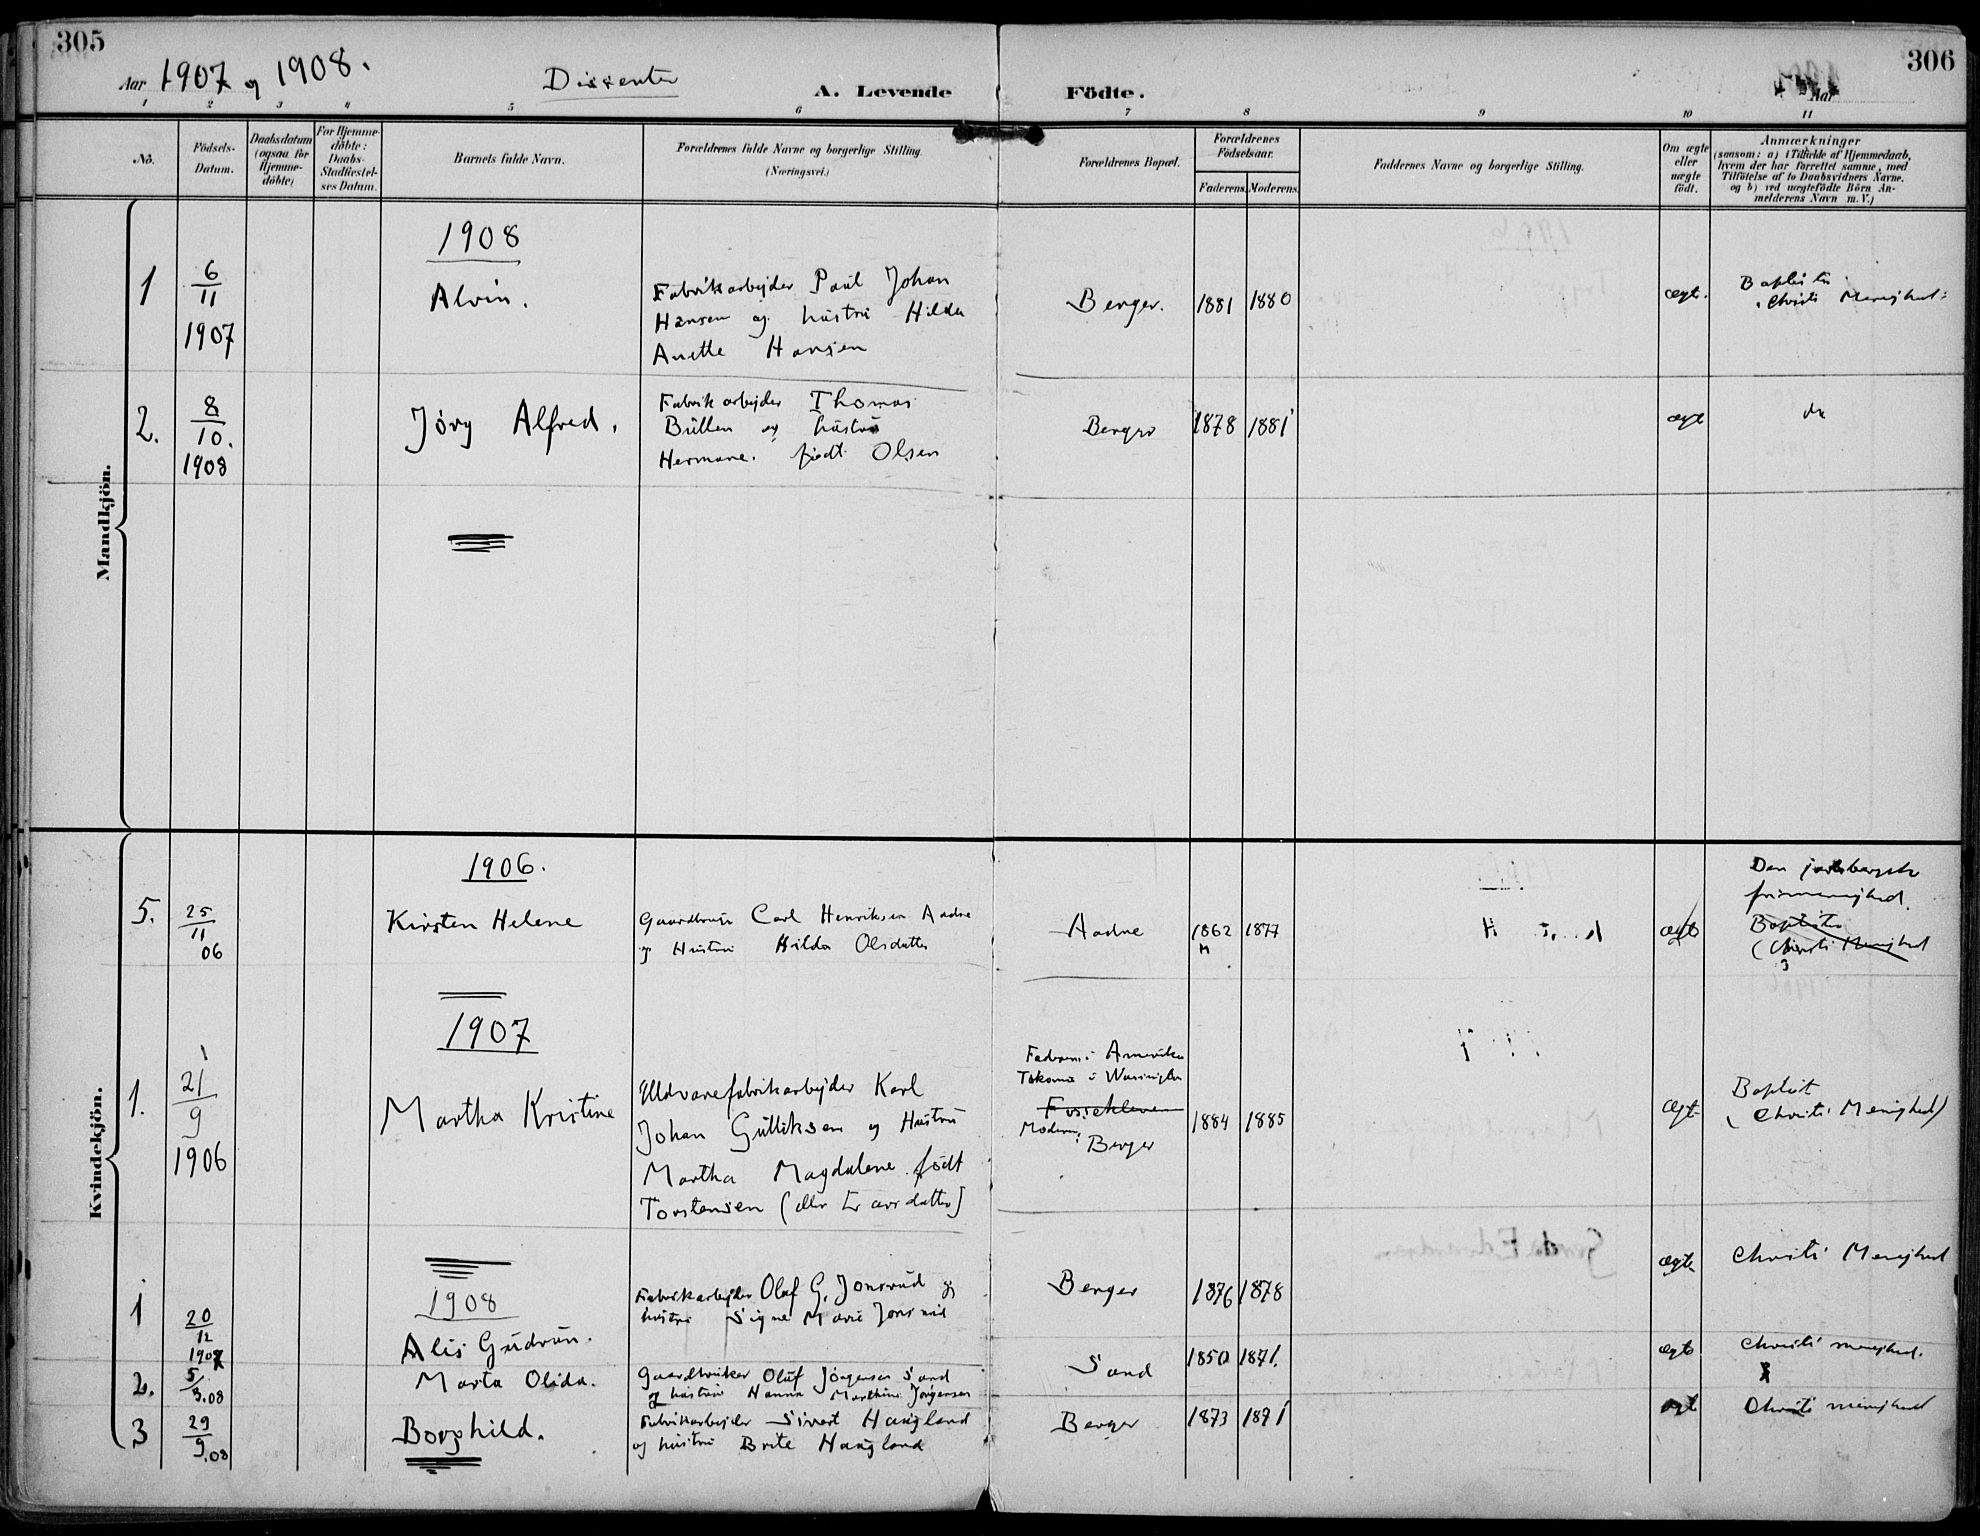 305
306
Aar 1907 og 1908.
Dissenter
A. Levende Födte.
Aar
1 2 3 4 5 6 7 8 9 10 11
No.
Födsels-
Datum.
Daabsdatum
(ogsaa for
Hjemme-
döbte)
For Hjemme-
döbte:
Daabs-
Stadfæstel-
ses Datum.
Barnets fulde Navn.
Forældrenes fulde Navne og borgerlige Stilling.
(Næringsvei.)
Forældrenes Bopæl.
Forældrenes
Födselsaar.
Faderens. Moderens.
Faddernes Navne og borgerlige Stilling.
Om ægte
eller
uægte
födt.
Anmærkninger
(saasom: a) i Tilfælde af Hjemmedaab,
hvem der har forrettet samme, med
Tilföielse af to Daabsvidners Navne,
og b) ved uægtefödte Börn An-
melderens Navn m. V.)
Mandkjön.
1908
1
6
11
1907
Alvin.
Fabrikarbejder Paul Johan
Hansen og hustru Hilda
Anette Hansen
Berger.
1881 1880
ægt.
Baptister
Christi Menighed
2.
8
10.
1908
Jörg Alfred.
Fabrikarbejder Thomas
Bullen og hustru
Hermane. födt Olsen
Berger
1878 1881
ægt
do
Kvindekjön.
1906.
5.
25
11
06
Kirsten Helene
Gaardbruger Carl Henriksen Aadne
og Hustru Hilda Olsdatter
Aadne
1862 1877
ægte
Den jarlsbergske
frimenighed.
Baptister
(Christi Menighed
1907
1.
21
9
1906
Martha Kristine
Uldvarefabrikarbejder Karl
Johan Gulliksen og Hustru
Martha Magdalene født
Torstensen (eller
Faderen i Amerika
Takoma i Wasington
Fossekleven
Moderen:
Berger
1884 1885
ægte
Baptist
(Christi Menighed)
1908
1
20
12
1907
Alis Gudrun.
Fabrikarbejder Olaf G. Jonsrud og
hustru Signe Marie Jonsrud
Berger
1876 1878
ægte
Christi Menighed
2.
5
3.08
Marta Olida.
Gaardbruker Oluf Jörgensen Sand
og hustru Hanna Marthine Jörgensen
Sand
1850 1871.
ægte
Christi menighed.
3
29
9.08
Borghild.
Fabrikarbejder Sivert Haugland
og hustru Brite Haugland
Berger
1873 1871
ægte
Christi menighed